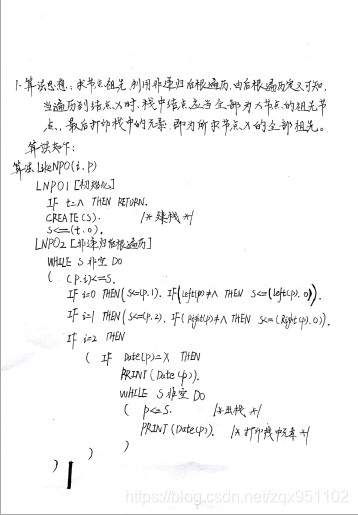 1. 算法思想：求节点祖先，利用非递归后根遍历，由后根遍历定义可知，
当遍历到结点X时，栈中结点应当全部为X节点的祖先节
点，最后打印栈中的元素，即为所求节点X的全部祖先。
算法如下：
算法 LikeNPO(t.p)
LNPO1 [初始化]
IF t=Λ THEN RETURN.
CREATE(S). /*建栈*/
S<=(t.0).
LNPO2 [非递归后根遍历]
WHILE S非空 DO
( (p.i)<=S.
IF i=0 THEN(S<=(p.1). IF(Left(p)≠Λ THEN S<=(Left(p).0)).
IF i=1 THEN(S<=(p.2). IF(Right(p)≠Λ THEN S<=(Right(p).0)).
IF i=2 THEN
( IF Date(p)=X THEN
PRINT(Date(p)).
WHILE S非空 DO
( p<=S. /*出栈*/
PRINT(Date(p)). /*打印栈中元素*/
)
)
)
https://blog.csdn.net/zqx951102